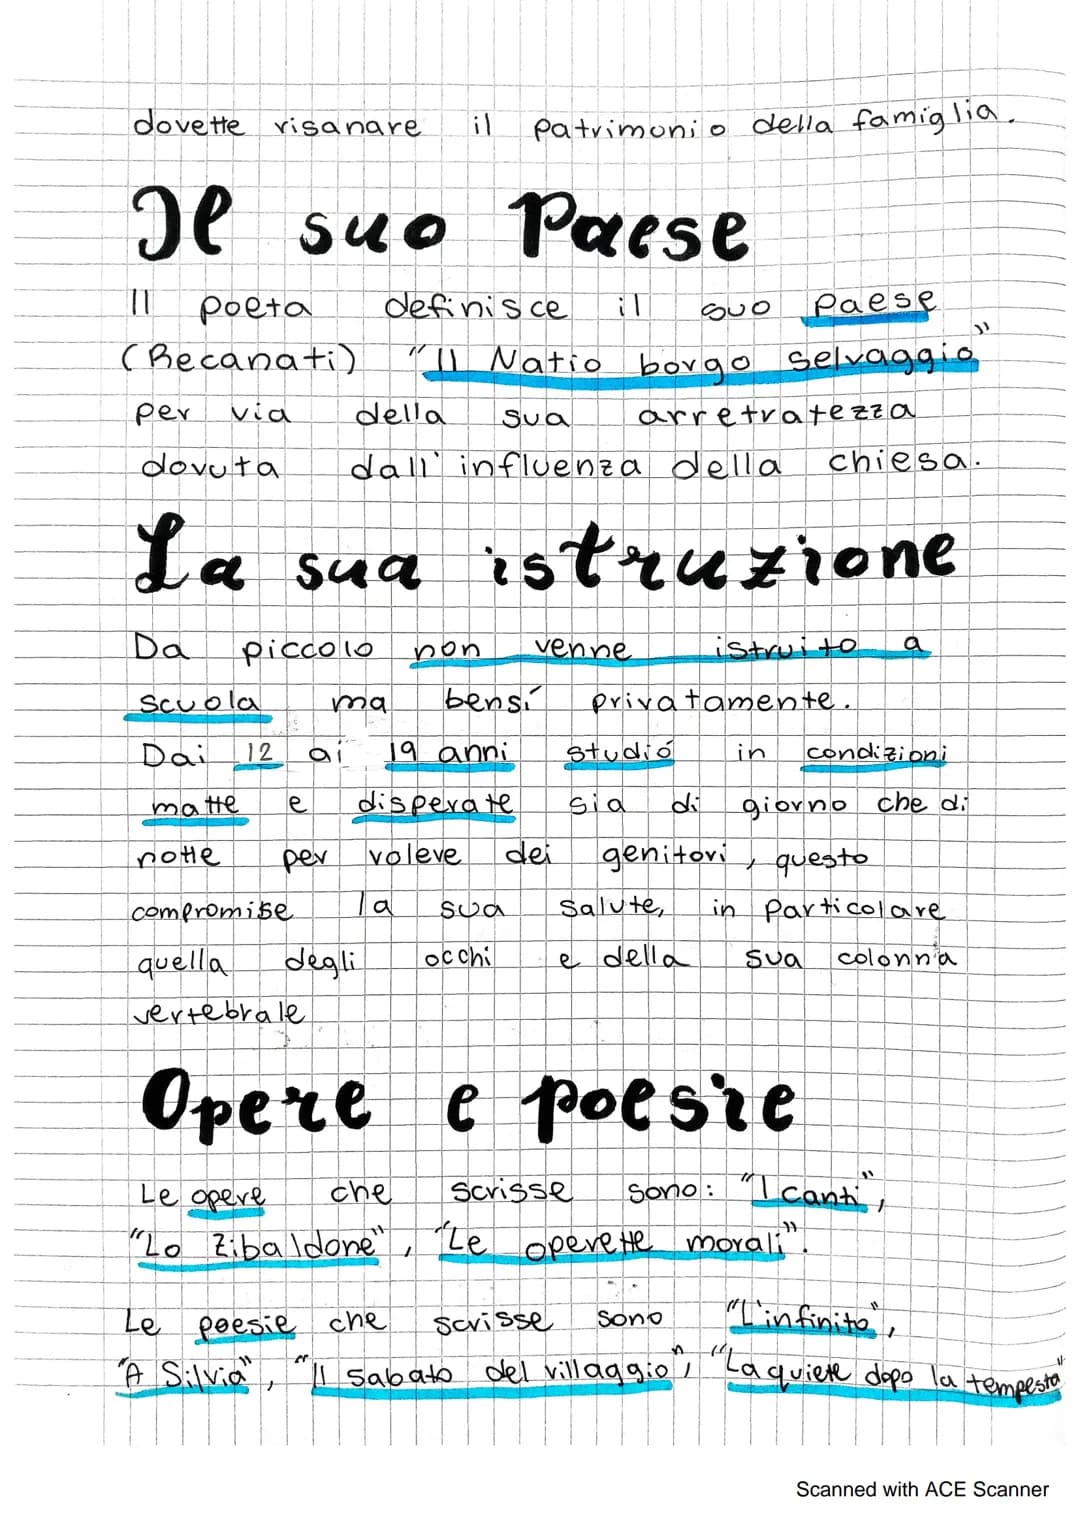 dovette risanare il patrimonio della famiglia.
Il suo Paese
Il poeta definisce il suo paese
(Recanati) "Il Natio borgo selvaggio"
per via della sua arretratezza
dovuta dall'influenza della chiesa.
La sua istruzione
Da piccolo non venne istruito a
scuola ma bensí privatamente.
Dai 12 ai 19 anni studió in condizioni
matte e disperate sia di giorno che di
notte per voleve dei genitori, questo
compromise la sua salute, in particolare
quella degli occhi e della sua colonna
vertebrale
Opere e poesie
Le opere che scrisse sono: "I canti",
"Lo Zibaldone", "Le operette morali".
Le poesie che scrisse sono "L'infinito",
"A Silvia", "Il sabato del villaggio", "La quiete dopo la tempesta"
Scanned with ACE Scanner